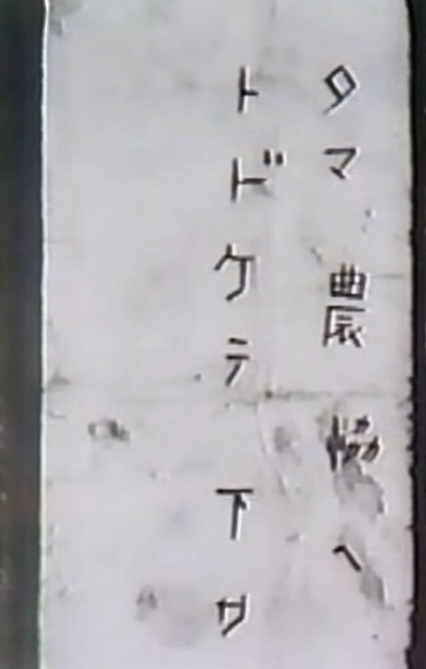 タマ農協へ
トドケテ下サ